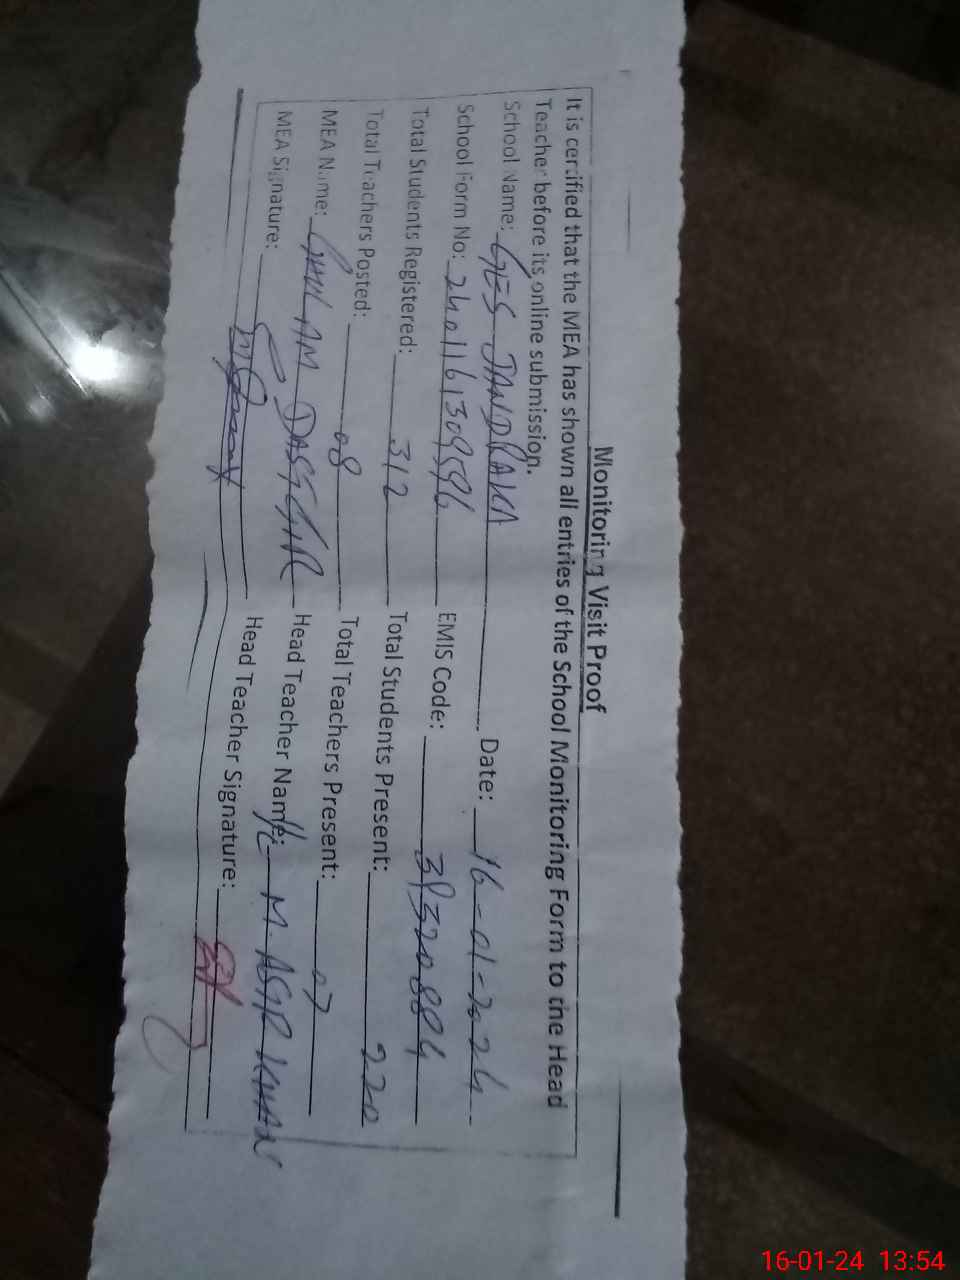 Monitoring Visit Proof
It is certified that the MEA has shown all entries of the School Monitoring Form to the Head
Teacher before its online submission.
School Name: GES JANDRAKA Date: 16-01-2024
School Form No: EMIS Code: 39320884
Total Students Registered: 312 Total Students Present: 220
Total Teachers Posted: 08 Total Teachers Present: 07
MEA Name: GHULAM DASTGIR Head Teacher Name: M. ASIF KHAN
MEA Signature: Head Teacher Signature:
16-01-24 13:54